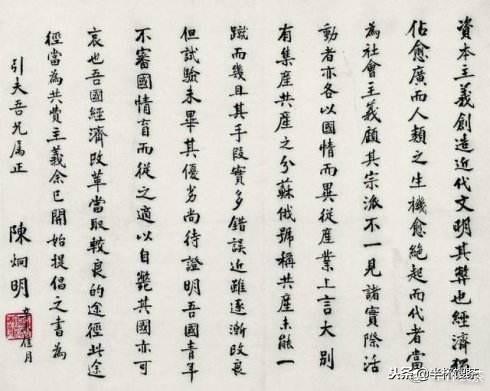 資本主義創造近代文明其弊也經濟
佔愈廣而人類之生機愈絕起而代者當
為社會主義顧其宗派不一見諸實際活
動者亦各以國情而異從產業上言大別
有集產共產之分蘇俄號稱共產未能一
蹴而幾且其手段實多錯誤近雖逐漸改良
但試驗未畢其優劣尚待證明吾國青年
不審國情盲而從之適以自斃其國亦可
哀也吾國經濟改革當取較良的途徑此途
徑當為共賞主義余已開始提倡之書為
引夫吾兄屬正
陳炯明
月
头条